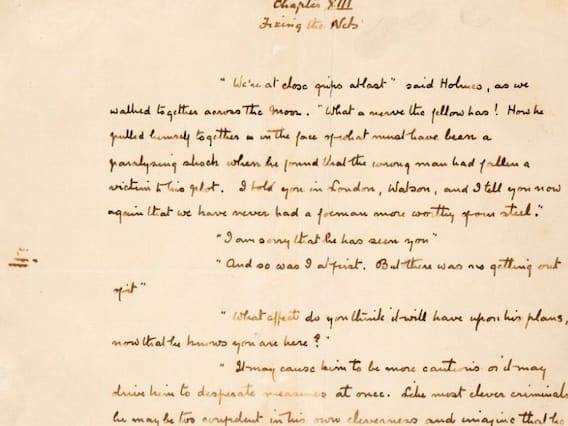 Chapter XIII
Fixing the Nets
"We're at close grips at last" said Holmes, as we
walked together across the moor. "What a nerve the fellow has! How he
pulled himself together in the face of what must have been a
paralysing shock when he found that the wrong man had fallen a
victim to his plot. I told you in London, Watson, and I tell you now
again that we have never had a foeman more worthy of our steel."
"I am sorry that he has seen you"
"And so was I at first. But there was no getting out
of it"
"What effect do you think it will have upon his plans,
now that he knows you are here?"
"It may cause him to be more cautious or it may
drive him to desperate measures at once. Like most clever criminals
he may be too confident in his own cleverness and imagine that he